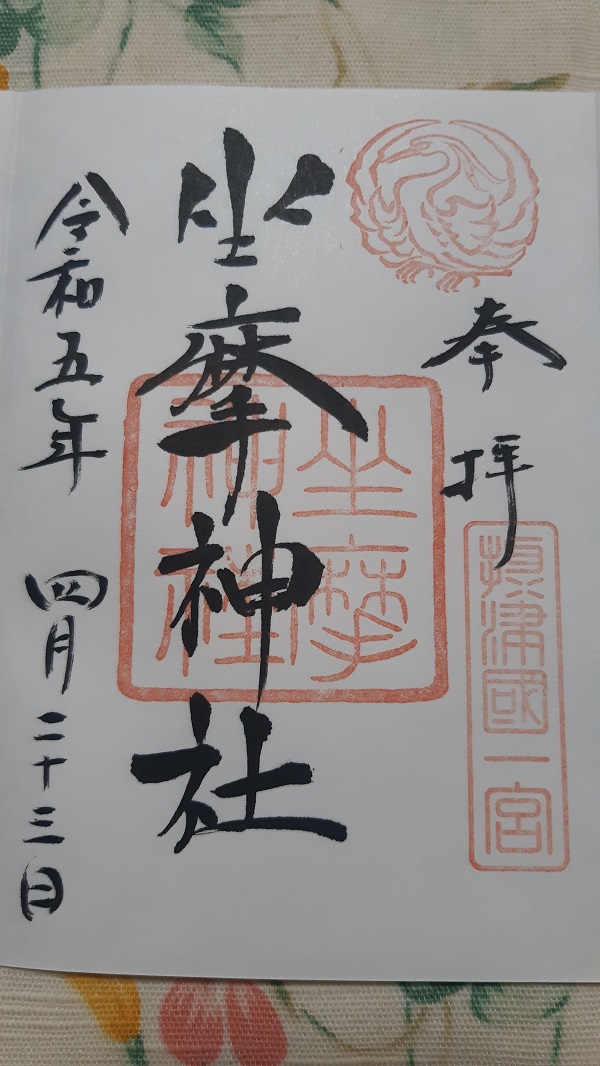 奉拝
摂津國一宮
坐摩神社
坐摩神社
令和五年 四月二十三日